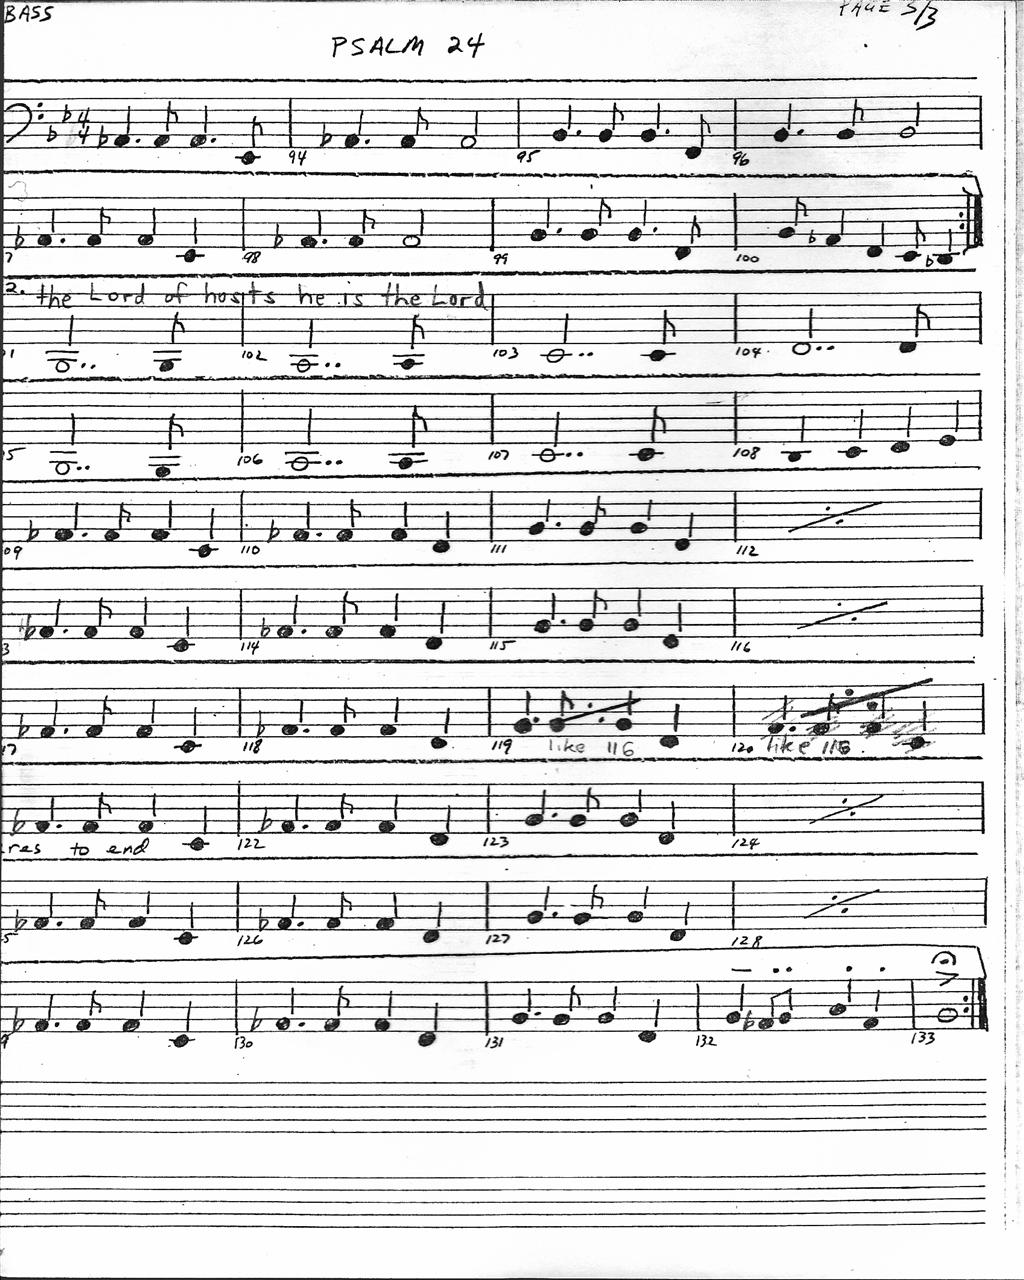 BASS
PAGE 3/3
PSALM 24
4
4
94
95
96
7
98
99
100
2. the Lord of hosts he is the Lord
01
102
103
104
5
106
107
108
09
110
111
112
3
114
115
116
17
118
119 like 116
120 like 116
res to end
122
123
124
5
126
127
128
9
130
131
132
133